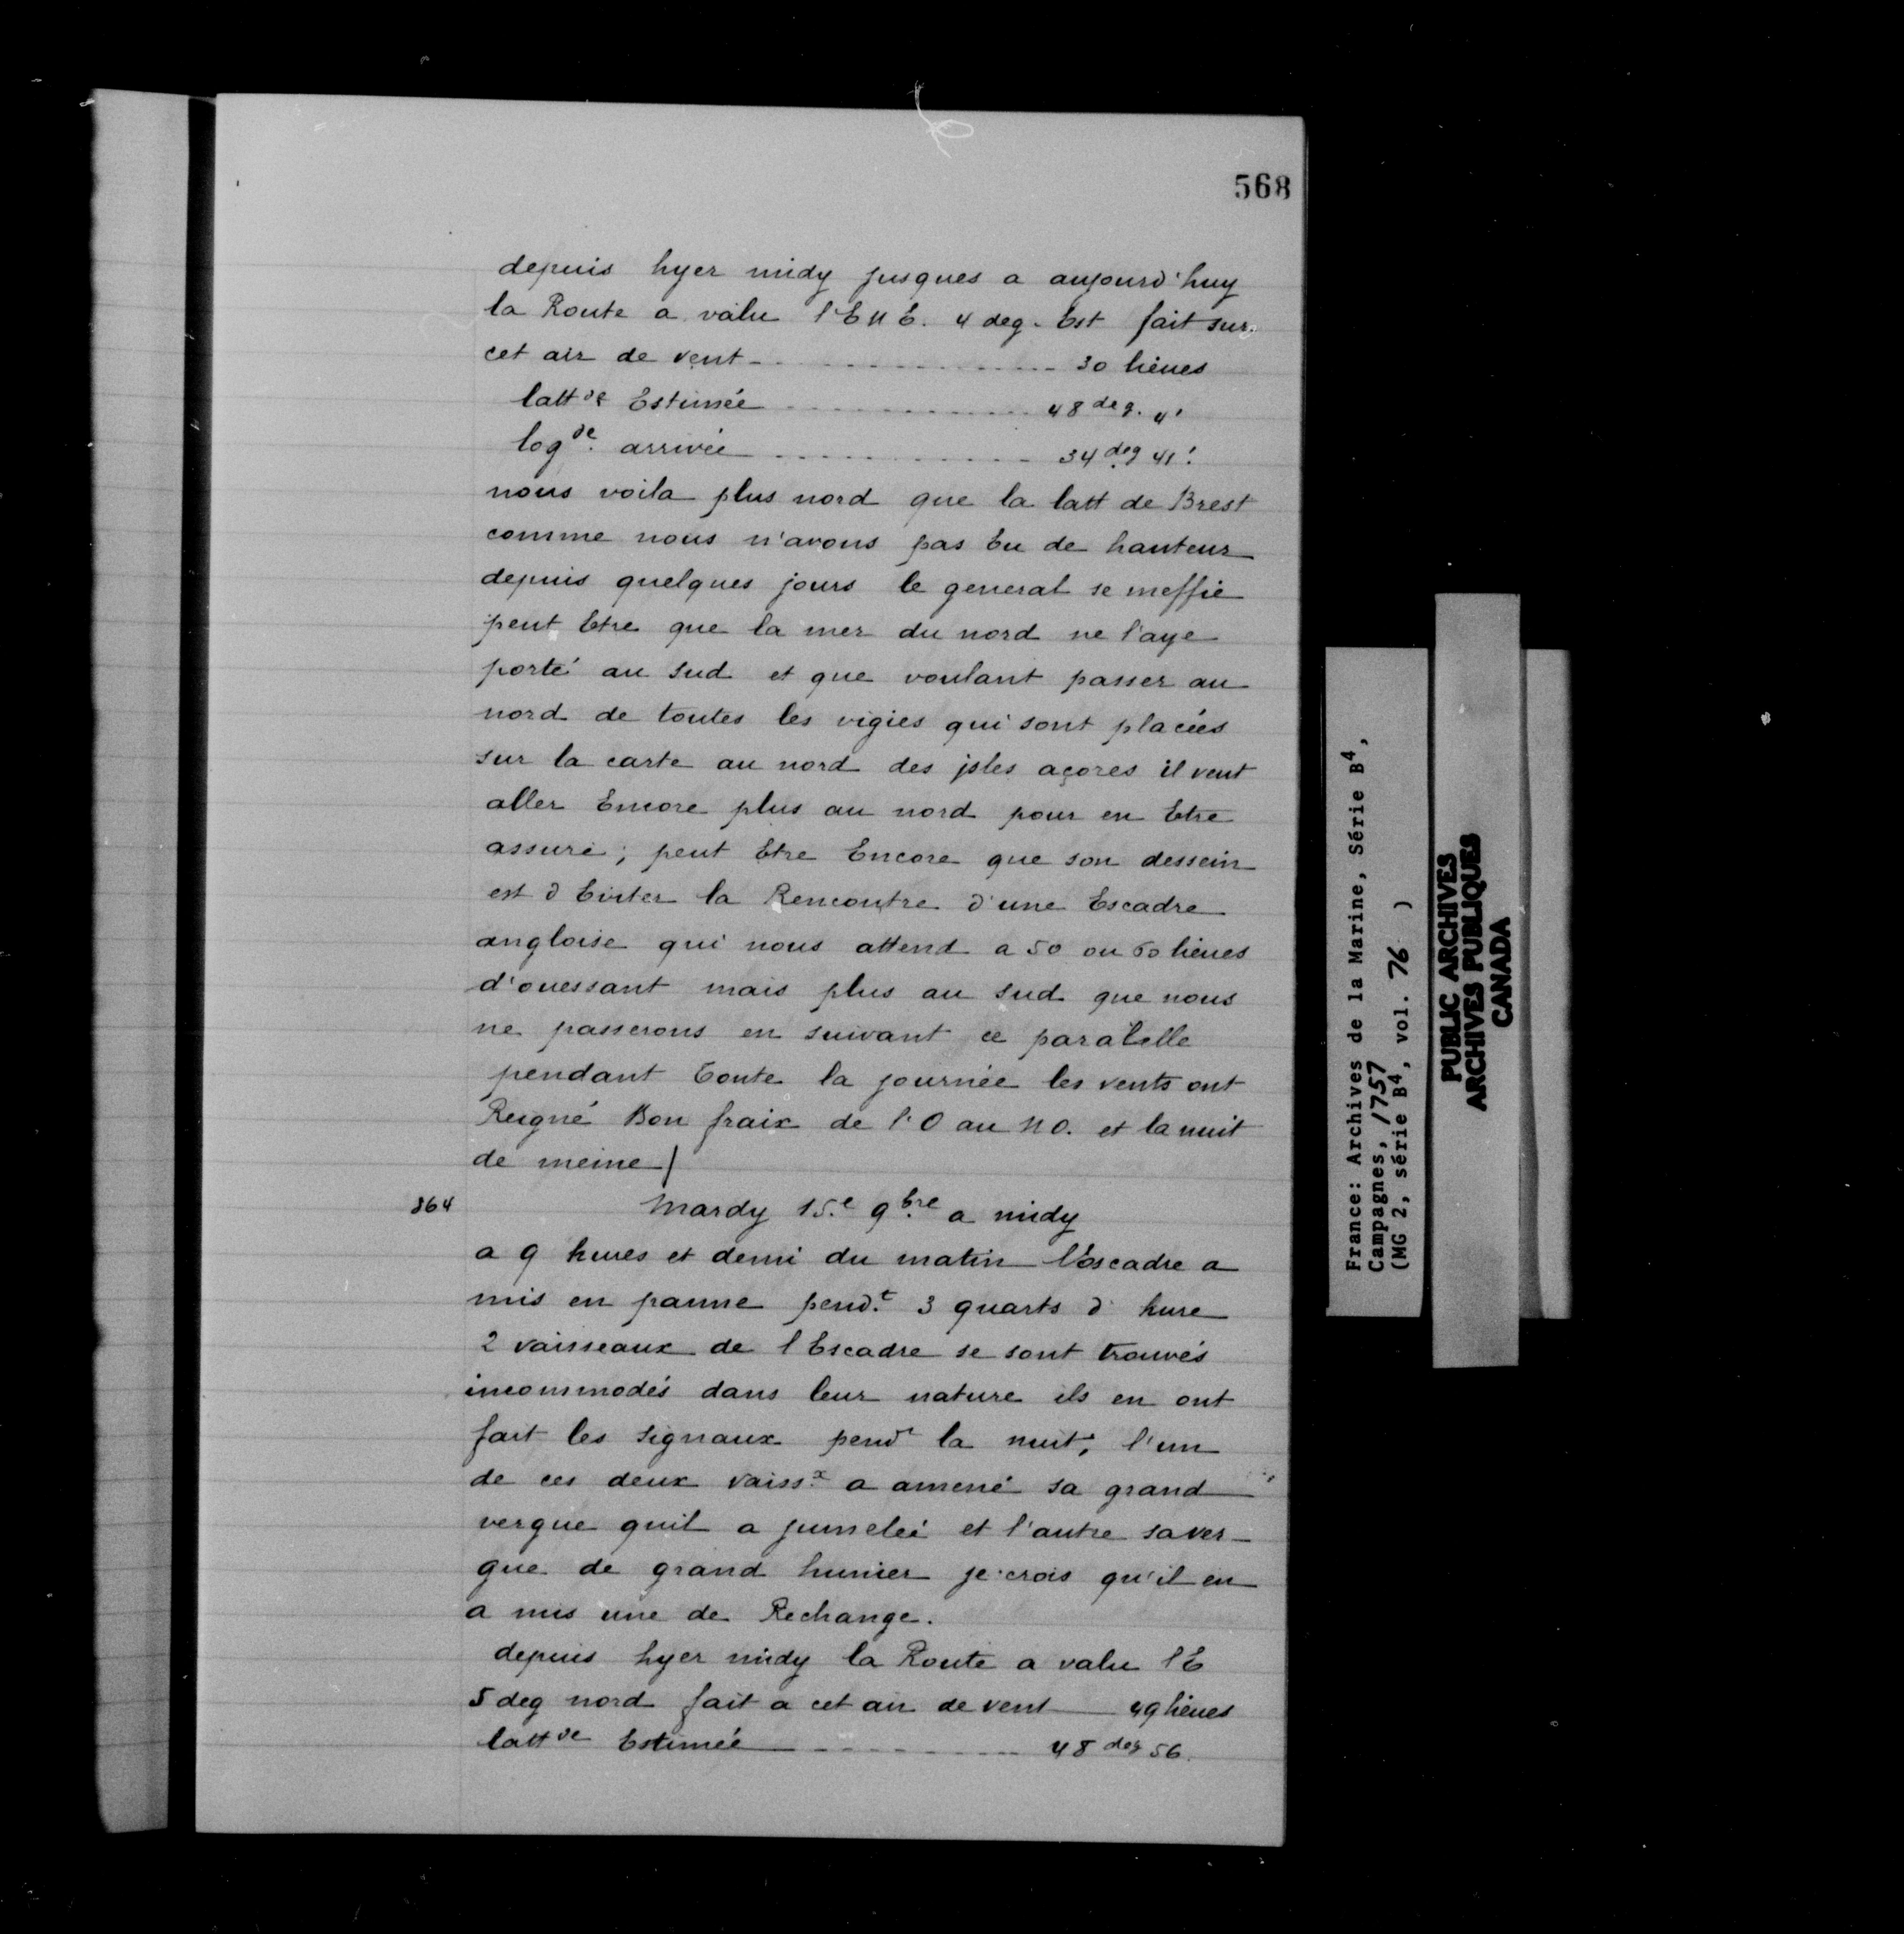 568
depuis hyer midy jusques a aujourd'huy
la Route a valu l'ENE. 4 deg. Est fait sur
cet air de vent ................ 30 lieues
lattde Estimée ................ 48 deg. 4'
logde. arrivée ................ 34 deg 41'.
nous voila plus nord que la latt de Brest
comme nous n'avons pas Eu de hauteur
depuis quelques jours le general se meffie
peut Etre que la mer du nord ne l'aye
porté au sud et que voulant passer au
nord de toutes les vigies qui sont placées
sur la carte au nord des jsles açores il veut
aller Encore plus au nord pour en Etre
assuré; peut Etre Encore que son dessein
est d Eviter la Rencontre d'une Escadre
angloise qui nous attend a 50 ou 60 lieues
d'ouessant mais plus au sud que nous
ne passerons en suivant ce paralelle
pendant toute la journée les vents ont
Reigné Bon fraix de l'O au NO. et la nuit
de meme /
364
Mardy 15.e 9.bre a midy
a 9 hures et demi du matin l'Escadre a
mis en panne pend.t 3 quarts d' hure
2 vaisseaux de l Escadre se sont trouvés
incommodés dans leur nature ils en ont
fait les signaux pendt la nuit, l'un
de ces deux vaiss.x a amené sa grand
vergue quil a jumeleé et l'autre sa ver-
gue de grand hunier je crois qu'il en
a mis une de Rechange.
depuis hyer midy la Route a valu l'E
5 deg nord fait a cet air de vent — 49 lieues
lattde Estimée ................ 48 deg 56.
France: Archives de la Marine, Série B4,
Campagnes, 1757
(MG 2, série B4, vol. 76 )
PUBLIC ARCHIVES
ARCHIVES PUBLIQUES
CANADA